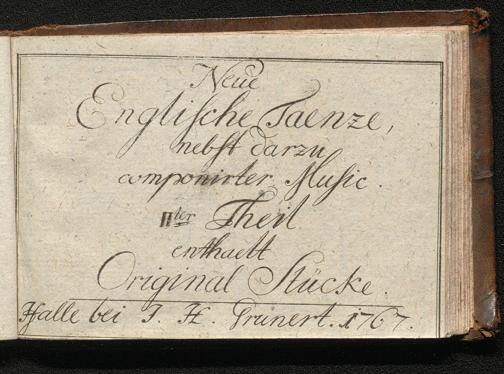 Neue
Engliſche Taenze,
nebſt darzu
componirter Muſic.
IIter Theil
enthaelt
Original Stücke.
Halle bei J. H. Grunert. 1767.